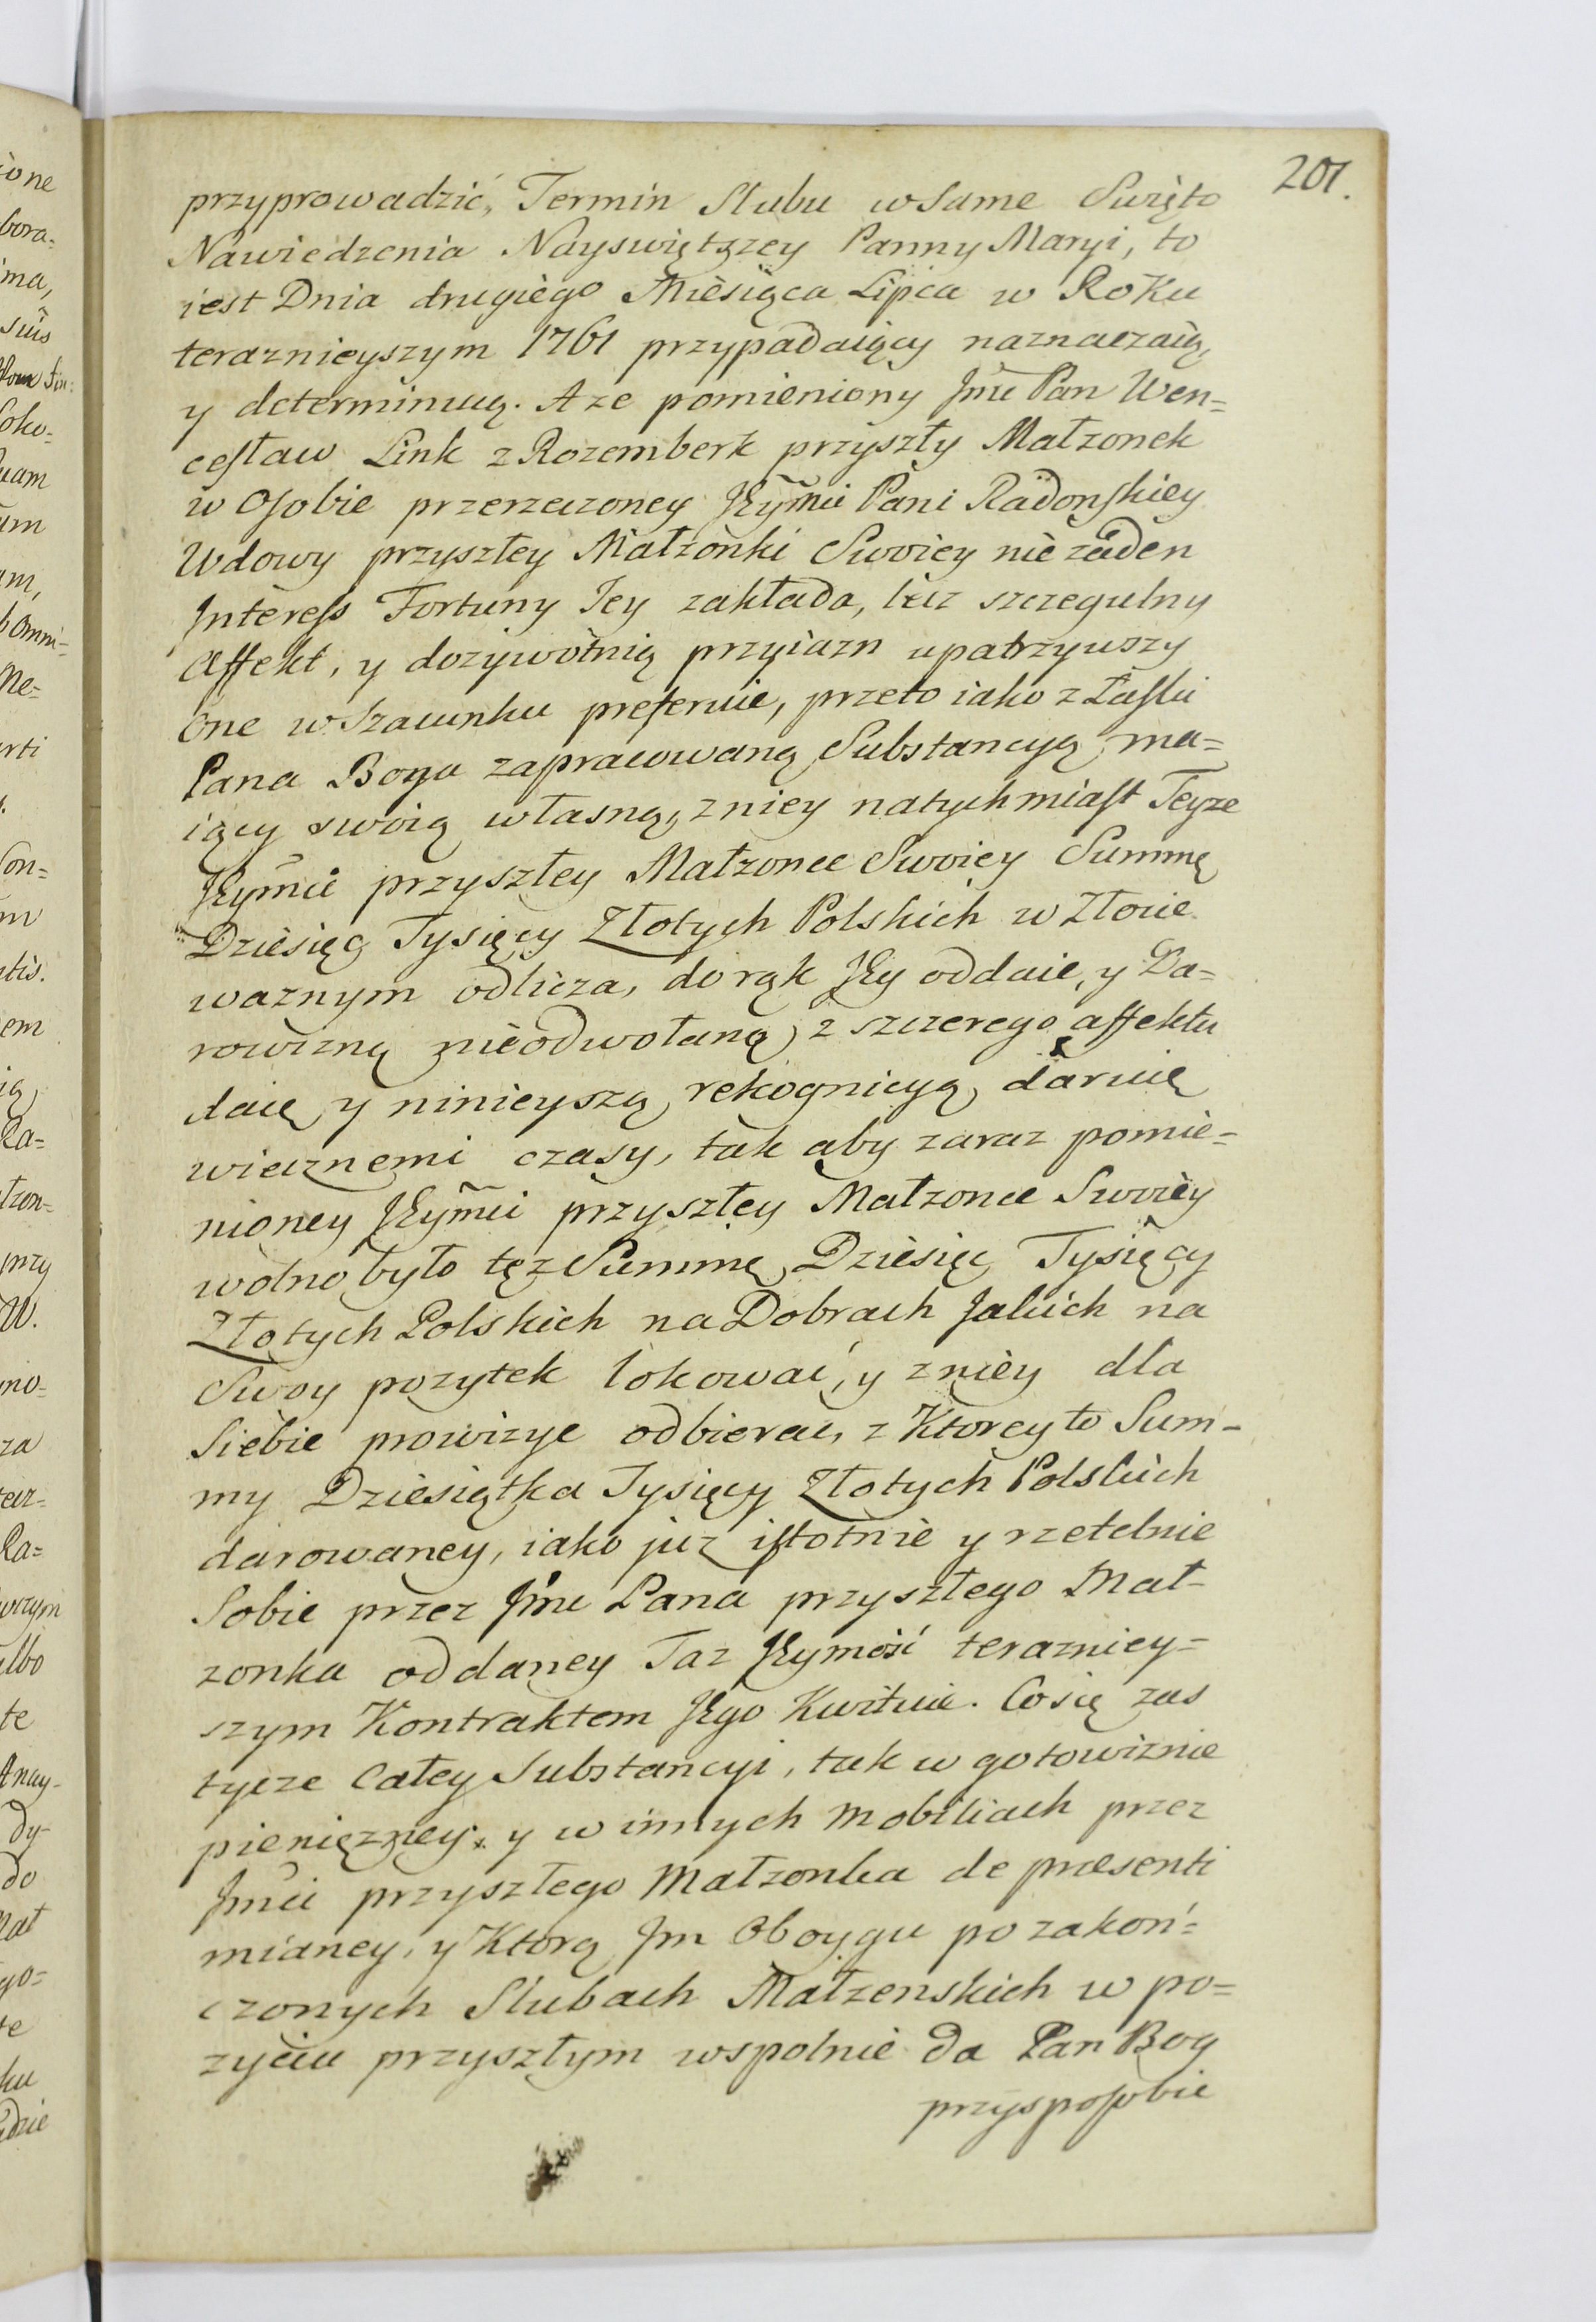 201.
przyprowadzić, Termin Slubu w Same Swięto
Nawiedzenia Nayswiętszey Panny Maryi, to
iest Dnia drugiego Miesiąca Lipca w Roku
teraznieyszym 1761 przypadaiący naznaczaią,
y determinuią. A ze pomieniony Jmć Pan Wen=
cesław Link z Rozemberk przyszły Małzonek
w Osobie przerzeczoney JEymći Pani Radonskiey
Wdowy przyszłey Małzonki Swoiey nie zaden
Interess Fortuny Jey zakłada, lecz szczegulny
Affekt, y dozywotnią przyiazn upatrzywszy
one w Szacunku preferuie, przeto iako z Łaski
Pana Boga zapracowaną Substancyą ma=
iący swoią własną, z niey natychmiast Teyze
JEymći przyszłey Małzonce Swoiey Summę
Dziesięć Tysięcy Złotych Polskich w Złocie
waznym odlicza, do rąk JEy oddaie, y Da=
rowiznę nieodwołaną z szczerego affektu
daie y ninieyszą rekognicyą daruie
wiecznemi czasy, tak aby zaraz pomie=
nioney JEymći przyszłey Małzonce Swoiey
wolno było tęz Summę Dziesięć Tysięcy
Złotych Polskich na Dobrach Jakich na
Swoy pozytek lokować, y z niey dla
Siebie prowizye odbierac, z Ktorey to Sum-
my Dziesiątka Tysięcy Złotych Polskich
darowaney, iako juz istotnie y rzetelnie
Sobie przez Jmć Pana przyszłego Mał-
zonka oddaney Taz JEymość terazniey=
szym Kontraktem JEgo Kwituie. Co się zas
tycze Całey Substancyi, tak w gotowiznie
pienięzney, y w innych mobiliach przez
Jmći przyszłego Małzonka de praesenti
mianey, y Ktorą Jm Oboygu po zakoń=
czonych Slubach Małzenskich w po=
zyciu przyszłym wspolnie da Pan Bog
przysposobic